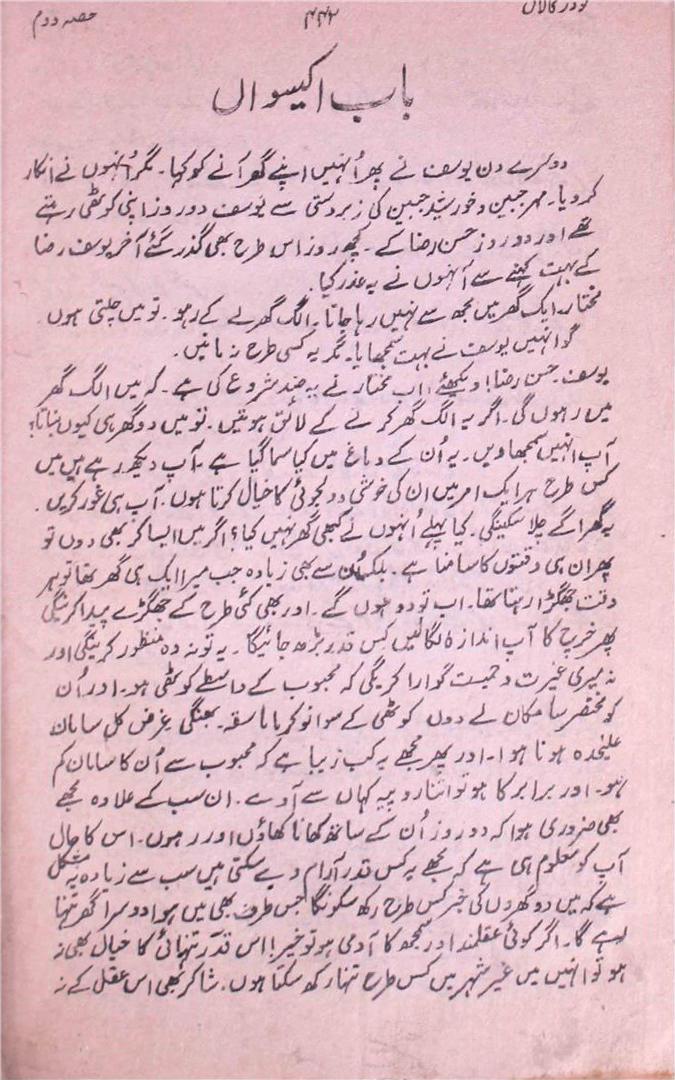 گودڑ کا لال ۴۴۲ حصہ دوم
باب اکیسواں
دوسرے دن یوسف نے پھر اُنہیں اپنے گھر آنے کو کہا۔ مگر اُنہوں نے انکار
کر دیا۔ مہر جبین و خورشید جبین کی زبردستی سے یوسف دو روز اپنی کوٹھی رہتے
تھے اور دو روز حسن رضا کے۔ کچھ روز اس طرح بھی گذر گئے آخر یوسف رضا
کے بہت کہنے سے اُنہوں نے یہ عذر کیا۔
مختار۔ ایک گھر میں مجھ سے نہیں رہا جاتا۔ الگ گھر لے کے رہو۔ تو میں چلتی ہوں۔
گو انہیں یوسف نے بہت سمجھایا۔ مگر یہ کسی طرح نہ مانیں۔
یوسف۔ حسن رضا! دیکھئے، اب مختار نے یہ ضد شروع کی ہے۔ کہ میں الگ گھر
میں رہوں گی۔ اگر یہ الگ گھر کرنے کے لائق ہوتیں۔ تو میں دو گھر ہی کیوں بناتا؟
آپ انہیں سمجھاویں۔ یہ اُن کے دماغ میں کیا سما گیا ہے۔ آپ دیکھ رہے ہیں میں
کس طرح ہر ایک امر میں ان کی خوشی و دلجوئی کا خیال کرتا ہوں۔ آپ ہی غور کریں۔
یہ گھر آگے چلا سکینگی۔ کیا پہلے اُنہوں نے کبھی گھر نہیں کیا؟ اگر میں ایسا کر بھی دوں تو
پھر ان ہی دقتوں کا سامنا ہے۔ بلکہ اُن سے بھی زیادہ جب میرا ایک ہی گھر تھا تو ہر
وقت جھگڑا رہتا تھا۔ اب تو دو ہوں گے۔ اور بھی کئی طرح کے جھگڑے پیدا کرینگی
پھر خرچ کا آپ اندازہ لگا لیں کس قدر بڑھ جائیگا۔ یہ تو نہ وہ منظور کرینگی اور
نہ میری غیرت و حمیت گوارا کریگی کہ محبوب کے واسطے کوٹھی ہو۔ اور اُن
کو مختصر سا مکان لے دوں کوٹھی کے سوا نوکر ماما سقہ۔ بھنگی غرض کل سامان
علیٰحدہ ہونا ہوا۔ اور پھر مجھے یہ کب زیبا ہے کہ محبوب سے اُن کا سامان کم
ہو۔ اور برابر کا ہو تو اتنا روپیہ کہاں سے آوے۔ ان سب کے علاوہ مجھے
بھی ضروری ہوا کہ دو روز اُن کے ساتھ کھانا کھاؤں اور رہوں۔ اس کا حال
آپ کو معلوم ہی ہے کہ مجھے یہ کس قدر آرام دے سکتی ہیں سب سے زیادہ یہ مشکل
ہے کہ میں دو گھروں کی خبر کس طرح رکھ سکونگا جس طرف بھی میں ہوا دوسرا گھر تنہا
رہے گا۔ اگر کوئی عقلمند اور سمجھ کا آدمی ہو تو خیر! اس قدر تنہائی کا خیال بھی نہ
ہو تو انہیں میں غیر شہر میں کس طرح تنہا رکھ سکتا ہوں۔ شاکر بھی اس عقل کے نہ